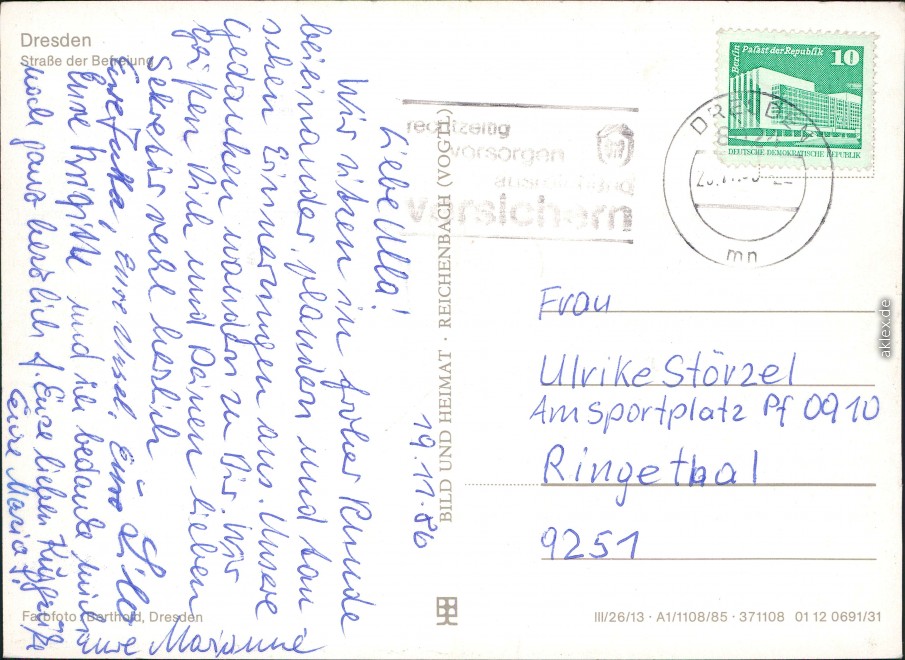 Dresden
Straße der Befreiung
19.11.86
Liebe Ulla!
Wir sitzen in froher Runde
beieinander, plaudern und tau
schen Erinnerungen aus. Unsere
Gedanken wandern zu Dir. Wir
grüßen Dich und Deinen lieben
Sekretär recht herzlich
Eure Jutta, Eure Ursel, Eure Lilo
Eure Brigitte und ich bedanke mich
noch ganz herzlich f. Eure lieben
Eure Maria
Eure Marianne
Farbfoto: Berthold, Dresden
BILD UND HEIMAT · REICHENBACH (VOGTL)
rechtzeitig
vorsorgen
versichern
Berlin Palast der Republik 10
DEUTSCHE DEMOKRATISCHE REPUBLIK
DRESDEN
mn
Frau
Ulrike Störzel
Am Sportplatz Pf 0910
Ringethal
9251
III/26/13 · A1/1108/85 · 371108 01 12 0691/31
aklex.de